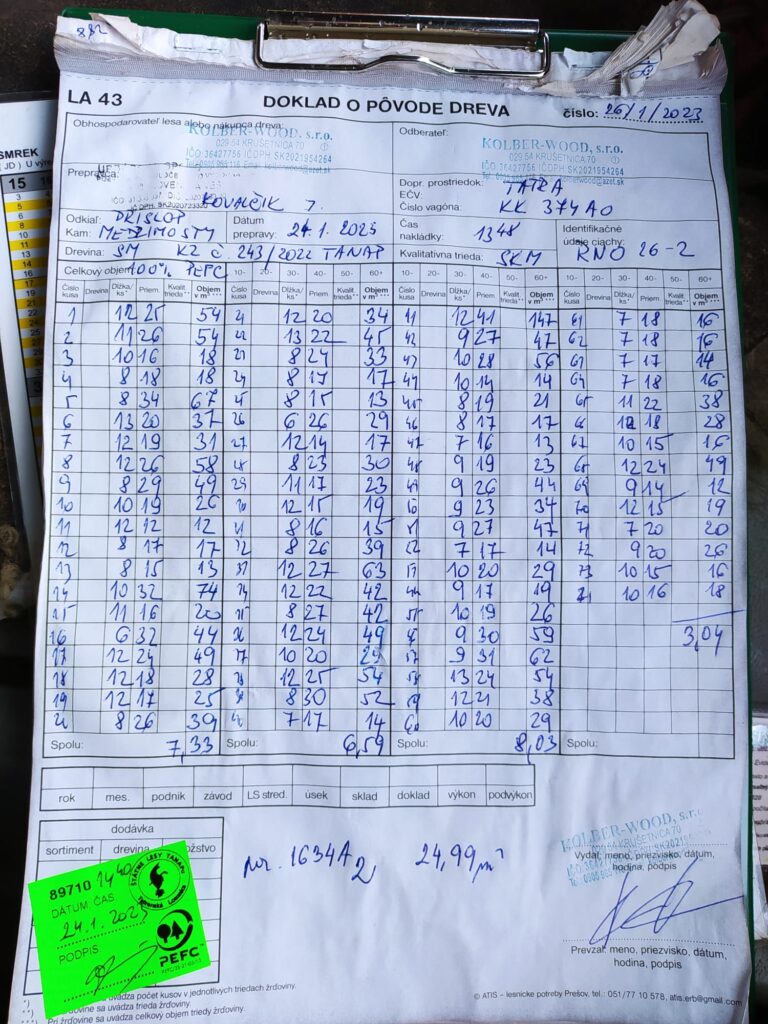 LA 43 DOKLAD O PÔVODE DREVA číslo: 26/1/2023
Obhospodarovateľ lesa alebo nákupca dreva: Odberateľ:
KOLBER-WOOD, s.r.o. KOLBER-WOOD, s.r.o.
029 54 KRUŠETNICA 70 029 54 KRUŠETNICA 70
IČO:36427756 IČDPH SK2021954264 IČO:36427756 IČDPH SK2021954264
Prepravca: KOVALČIK J. Dopr. prostriedok: TATRA
EČV.
Číslo vagóna: KK 374AO
Odkiaľ: PRISLOP Dátum Čas Identifikačné
Kam: MEDZIMOSTM prepravy: 24.1.2023 nakládky: 1348 údaje ciachy: RNO 26-2
Drevina: SM KZ č 243/2022 TANAP Kvalitatívna trieda: SKM
Celkový objem 100% PEFC 10- 20- 30- 40- 50- 60+ 10- 20- 30- 40- 50- 60+ 10- 20- 30- 40- 50- 60+
Číslo kusa Drevina Dĺžka/ks* Priem. Kvalit. trieda** Objem v m³ *** Číslo kusa Drevina Dĺžka/ks* Priem. Kvalit. trieda** Objem v m³ *** Číslo kusa Drevina Dĺžka/ks* Priem. Kvalit. trieda** Objem v m³ *** Číslo kusa Drevina Dĺžka/ks* Priem. Kvalit. trieda** Objem v m³ ***
1 12 25 54 21 12 20 34 41 12 41 147 61 7 18 16
2 11 26 54 22 13 22 45 42 9 27 47 62 7 18 16
3 10 16 18 23 8 24 33 43 10 28 56 63 7 17 14
4 8 18 18 24 8 17 17 44 10 14 14 64 7 18 16
5 8 34 67 25 8 15 13 45 8 19 21 65 11 22 38
6 13 20 37 26 6 26 29 46 8 17 17 66 12 18 28
7 12 19 31 27 12 14 17 47 7 16 13 67 10 15 16
8 12 26 58 28 8 23 30 48 9 19 23 68 12 24 49
9 8 29 49 29 11 17 23 49 9 26 44 69 9 14 12
10 10 19 26 30 12 15 19 50 9 23 34 70 12 15 19
11 12 12 12 31 8 16 15 51 9 27 47 71 7 20 20
12 8 17 17 32 8 26 39 52 7 17 14 72 9 20 26
13 8 15 13 33 12 27 63 53 10 20 29 73 10 15 16
14 10 32 74 34 12 22 42 54 9 17 19 74 10 16 18
15 11 16 20 35 8 27 42 55 10 19 26
16 6 32 44 36 12 24 49 56 9 30 59 3,04
17 12 24 49 37 10 20 29 57 9 31 62
18 12 18 28 38 12 25 54 58 13 24 54
19 12 17 25 39 8 30 52 59 12 21 38
20 8 26 39 40 7 17 14 60 10 20 29
Spolu: 7,33 Spolu: 6,59 Spolu: 8,03 Spolu:
rok mes. podnik závod LS stred. úsek sklad doklad výkon podvýkon
dodávka
sortiment drevina
1634A2 24,99
KOLBER-WOOD, s.r.o.
029 54 KRUŠETNICA 70
Vydal: meno, priezvisko, dátum,
hodina, podpis
Prevzal: meno, priezvisko, dátum,
hodina, podpis
89710 1440
DÁTUM, ČAS
24.1.2023
PODPIS
ŠTÁTNE LESY TANAPu
Tatranská Lomnica
PEFC
uvádza počet kusov v jednotlivých triedach žrďoviny.
žrďovine sa uvádza trieda žrďoviny.
Pri žrďovine sa uvádza celkový objem triedy žrďoviny.
© ATIS – lesnícke potreby Prešov, tel.: 051/77 10 578, atis.erb@gmail.com
SMREK
15